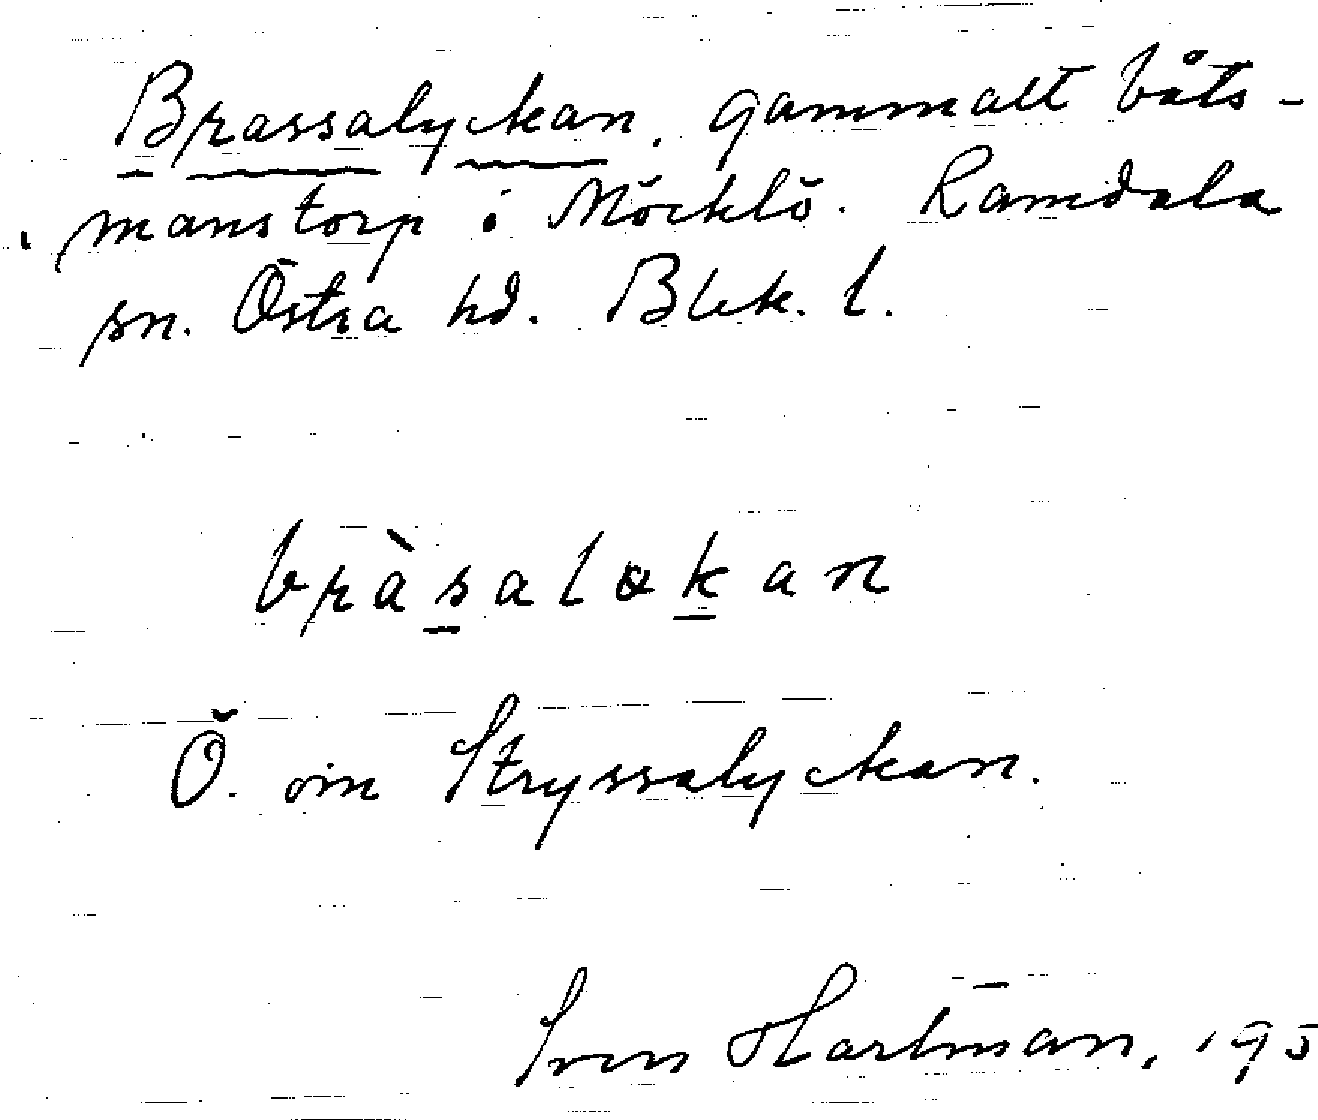 Brassalyckan, gammalt båts-
manstorp i Möcklö. Ramdala
sn. Östra hd. Blek. l.
bràsalɵkan
Ö. om Stryssalyckan.
Sven Hartman, 195